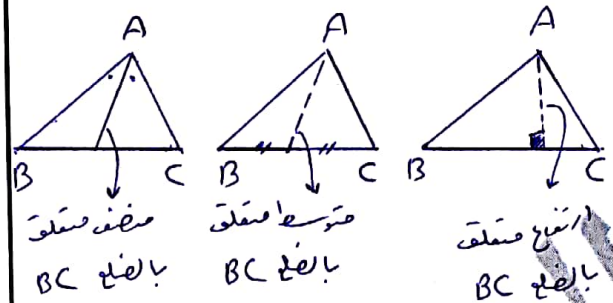 A
B C
منصف متعلق
بالضلع BC
A
B C
متوسط متعلق
بالضلع BC
A
B C
ارتفاع متعلق
بالضلع BC